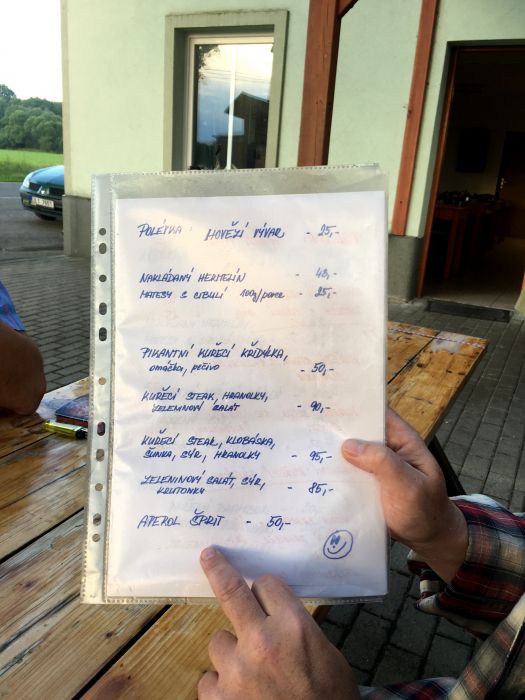 POLÉVKA: HOVĚZÍ VÝVAR - 25,-
NAKLÁDANÝ HERMELÍN - 49,-
MATESY S CIBULÍ 100g/porce - 25,-
PIKANTNÍ KUŘECÍ KŘIDÝLKA,
omáčka, pečivo - 50,-
KUŘECÍ STEAK, HRANOLKY,
ZELENINOVÝ SALÁT - 90,-
KUŘECÍ STEAK, KLOBÁSKA,
ŠUNKA, SÝR, HRANOLKY - 95,-
ZELENINOVÝ SALÁT, SÝR,
KRUTONKY - 85,-
APEROL ŠPRIT - 50,-